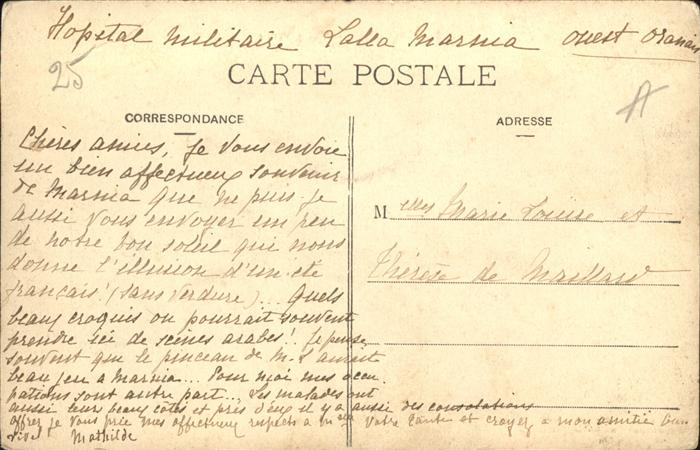 Hopital Militaire Lalla Marnia ouest oranais
25
CARTE POSTALE
A
CORRESPONDANCE
ADRESSE
Chères amies, je vous envoie
un bien affectueux souvenir
de Marnia que ne puis-je
aussi vous envoyer un peu
de notre bon soleil qui nous
donne l'illusion d'un été
français! (sans verdure)... Quels
beaux croquis on pourrait souvent
prendre ici de scènes arabes!! Je pense
souvent que le pinceau de M. L aurait
beau jeu à Marnia... Pour moi mes occu
pations sont autre part... Les malades ont
aussi leurs beaux côtés et près d'eux il y a aussi des consolations
offrez je vous prie mes affectueux respects à votre tante et croyez à mon amitié bien
vive Mathilde
Melles Marie Louise et
Thérèse de Maillard